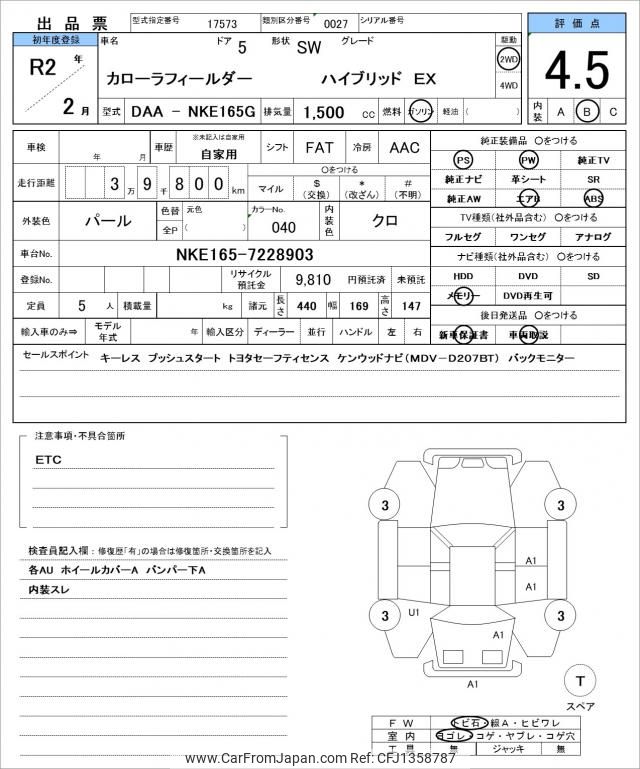 出品票 型式指定番号 17573 類別区分番号 0027 シリアル番号
評価点
4.5
内装 A B C
初年度登録
R2 年
2 月
車名 ドア 5 形状 SW グレード
カローラフィールダー ハイブリッド EX
駆動
2WD
4WD
型式 DAA － NKE165G 排気量 1,500 cc 燃料 ガソリン 軽油 ( )
車検 年 月 車歴 ※未記入は自家用 自家用 シフト FAT 冷房 AAC
走行距離 3 万 9 千 8 0 0 km マイル
○をつける
$ (交換) * (改ざん) # (不明)
外装色 パール 色替 全P 元色 ( ) カラーNo. 040 内装色 クロ
車台No. NKE165-7228903
登録No. リサイクル預託金 9,810 円預託済 未預託
定員 5 人 積載量 kg 諸元 長さ 440 幅 169 高さ 147
輸入車のみ⇒ モデル年式 年 輸入区分 ディーラー 並行 ハンドル 左 右
純正装備品 ○をつける
PS PW 純正TV
純正ナビ 革シート SR
純正AW エアB ABS
TV種類(社外品含む) ○をつける
フルセグ ワンセグ アナログ
ナビ種類(社外品含む) ○をつける
HDD DVD SD
メモリー DVD再生可
後日発送品 ○をつける
新車保証書 車両取説
セールスポイント キーレス プッシュスタート トヨタセーフティセンス ケンウッドナビ(MDV－D207BT) バックモニター
注意事項・不具合箇所
ETC
検査員記入欄：修復歴「有」の場合は修復箇所・交換箇所を記入
各AU ホイールカバーA バンパー下A
内装スレ
3 3
A1
A1
3 U1 3
A1
A1
T
スペア
FW トビ石・線A・ヒビワレ
室内 ヨゴレ・コゲ・ヤブレ・コゲ穴
工具 無 ジャッキ 無
www.CarFromJapan.com Ref: CFJ1358787